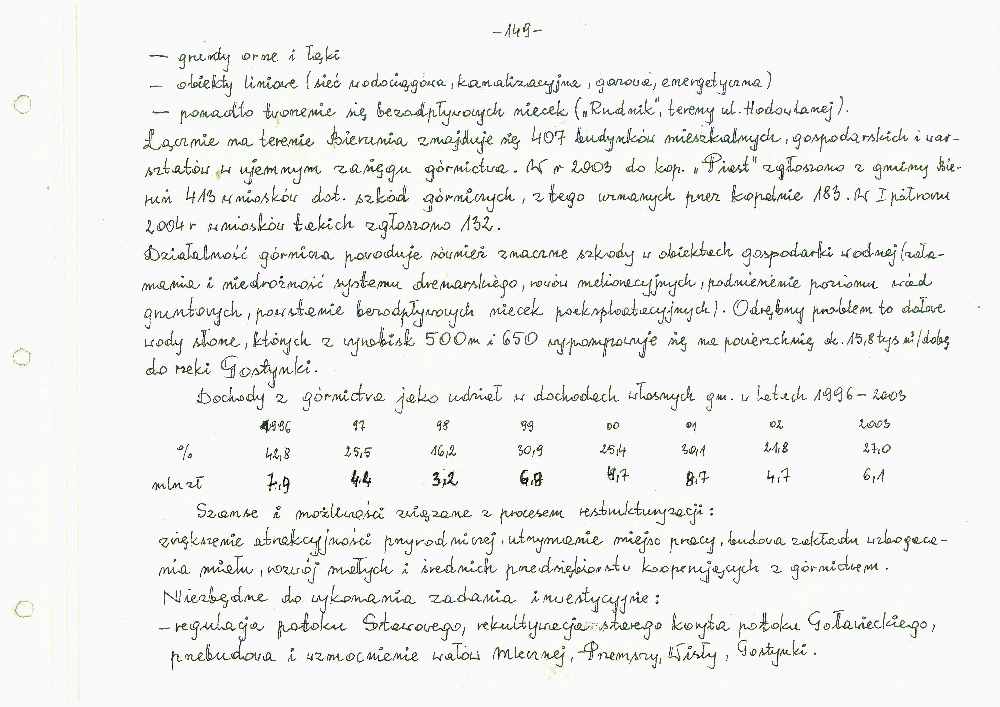 -149-
— grunty orne i łąki
— obiekty liniowe (sieć wodociągowa, kanalizacyjna, gazowa, energetyczna)
— ponadto tworzenie się bezodpływowych niecek („Rudnik", tereny ul. Hodowlanej).
Łącznie na terenie Bierunia znajduje się 407 budynków mieszkalnych, gospodarskich i war-
sztatów w ujemnym zasięgu górnictwa. W r 2003 do kop. „Piast" zgłoszono z gminy Bie-
ruń 413 wniosków dot. szkód górniczych, z tego uznanych przez kopalnie 183. W I półroczu
2004 r wniosków takich zgłoszono 132.
Działalność górnicza powoduje również znaczne szkody w obiektach gospodarki wodnej (zała-
mania i niedrożność systemu drenarskiego, rowów melioracyjnych, podniesienie poziomu wód
gruntowych, powstanie bezodpływowych niecek poeksploatacyjnych). Odrębny problem to dołowe
wody słone, których z wyrobisk 500 m i 650 wypompowuje się na powierzchnię ok. 15,8 tys m³/dobę
do rzeki Gostynki.
Dochody z górnictwa jako udział w dochodach własnych gm. w latach 1996 - 2003
1996 97 98 99 00 01 02 2003
% 42,8 25,5 16,2 30,9 25,4 30,1 21,8 27,0
mln zł 7,9 4,4 3,2 6,8 4,7 8,7 4,7 6,1
Szanse i możliwości związane z procesem restrukturyzacji:
zwiększenie atrakcyjności przyrodniczej, utrzymanie miejsc pracy, budowa zakładu wzbogaca-
nia miału, rozwój małych i średnich przedsiębiorstw kooperujących z górnictwem.
Niezbędne do wykonania zadania inwestycyjne:
- regulacja potoku Stawowego, rekultywacja starego koryta potoku Goławieckiego,
przebudowa i wzmocnienie wałów Mlecznej, Przemszy, Wisły, Gostynki.